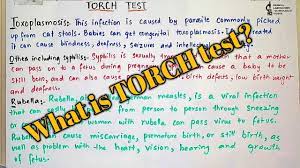 TORCH TEST
Toxoplasmosis: This infection is caused by parasite commonly picked
up from cat stools. Babies can get congenital toxoplasmosis treated
it can cause blindness, deafness, seizures and intellectual
Often including syphilis: Syphilis is sexually that a mother
pass on to a fetus cause a baby to be
still born, and can also cause birth defect, low birth weight
and deafness.
Rubella: Rubella, measles, is a viral infection
that can from person to person through sneezing
or women with rubella can pass virus to fetus.
Rubella cause miscarriage, premature birth or still birth, as
well as problem with the heart, vision, hearing and growth
of fetus.
What is TORCH test?